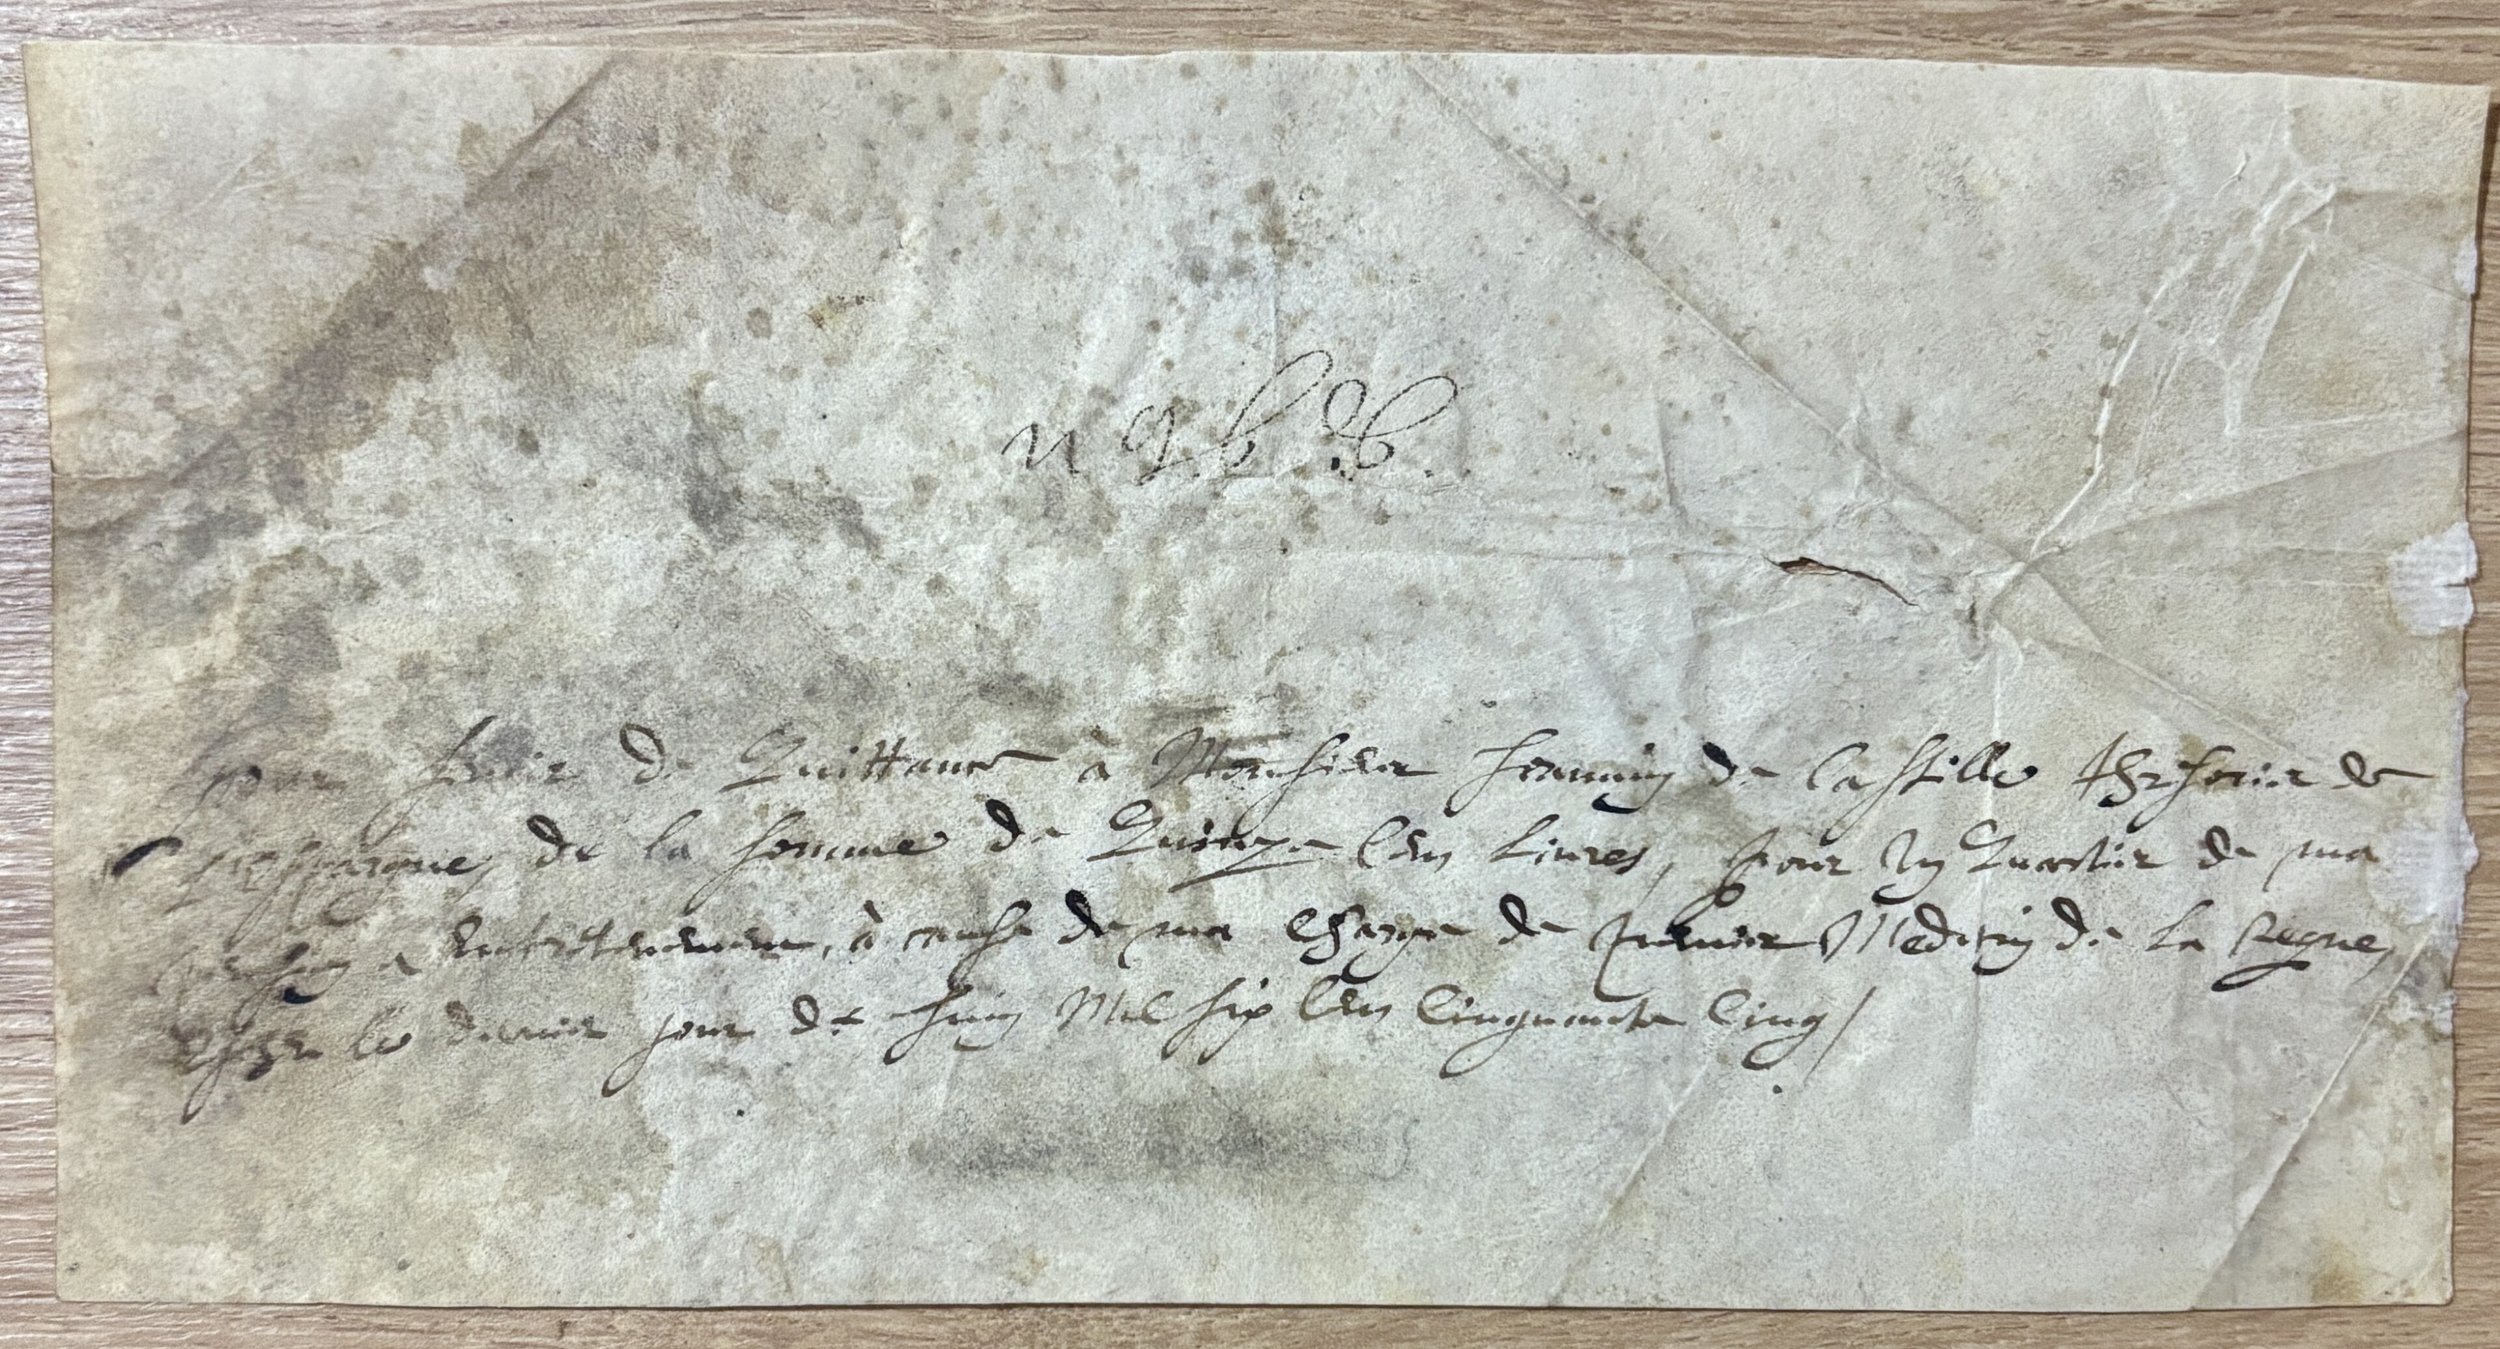 Pour servir de Quittance à Monsieur Jeannin de Castille thresorier de
l'espargne, de la somme de Quinze Cens Livres, pour un Quartier de ma
pension & entretenement, à cause de ma charge de premier Medecin de la Reyne,
le dernier jour de Juin Mil six Cens Cinquante Cinq /